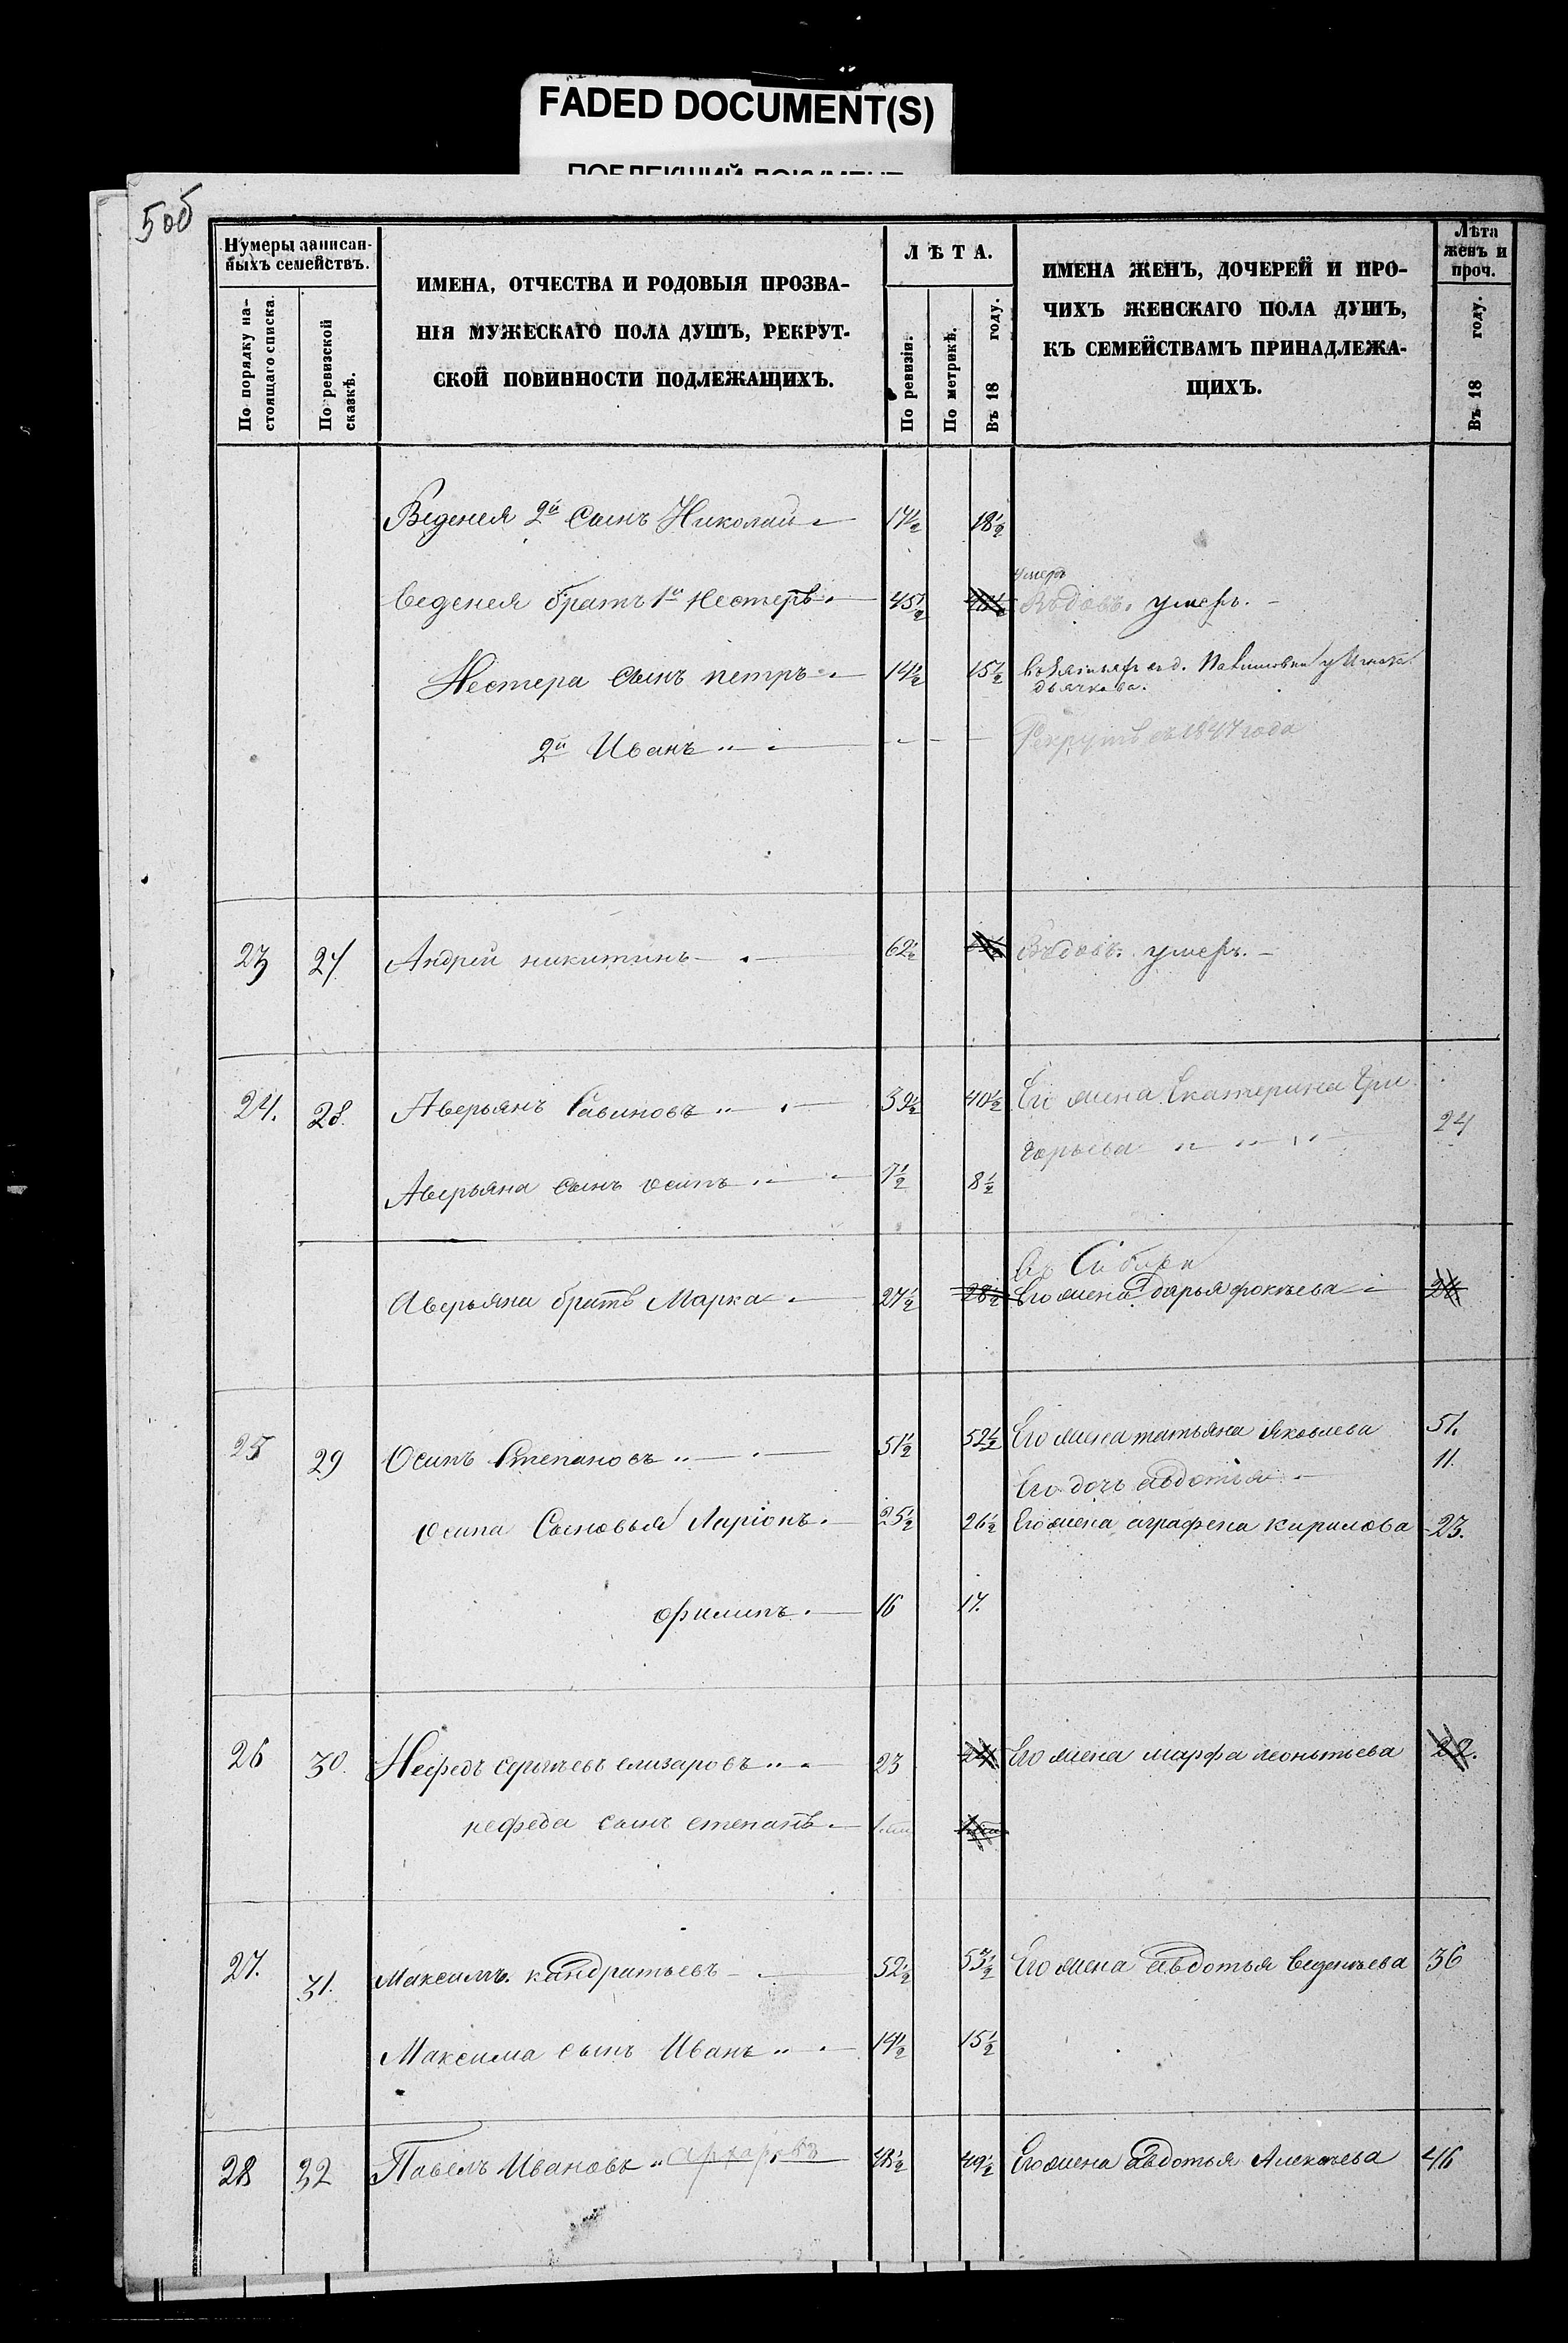 FADED DOCUMENT(S)
ПОБЛЕКШИЙ ДОКУМЕНТ
5об
Нумеры записан-
ныхъ семействъ.
По порядку на-
стоящаго списка.
По ревизской
сказкѣ.
ИМЕНА, ОТЧЕСТВА И РОДОВЫЯ ПРОЗВА-
НІЯ МУЖЕСКАГО ПОЛА ДУШЪ, РЕКРУТ-
СКОЙ ПОВИННОСТИ ПОДЛЕЖАЩИХЪ.
ЛѢТА.
По ревизіи.
По метрикѣ.
Въ 18 году.
ИМЕНА ЖЕНЪ, ДОЧЕРЕЙ И ПРО-
ЧИХЪ ЖЕНСКАГО ПОЛА ДУШЪ,
КЪ СЕМЕЙСТВАМЪ ПРИНАДЛЕЖА-
ЩИХЪ.
Лѣта
женъ и
проч.
Въ 18 году.
Веденея 2й сынъ Николай 17½ 18½
умеръ
Веденея братъ 1й Нестеръ 45½ 46½ Вѣдовъ. умеръ.
Нестера сынъ петръ 14½ 15½ въ д. у
дьячкова.
2й Иванъ Рекрутъ съ 1847 года
23 27 Андрей никитинъ 62½ Вѣдовъ. умеръ.
24. 28. Аверьянъ Савиновъ 39½ 40½ Его жена Екатерина Гри
горьева 24
Аверьяна сынъ осипъ 7½ 8½
Въ Сибири
Аверьяна братъ Марка 27½ 28½ Его жена дарья фокѣева 24
25 29 Осипъ Степановъ 51½ 52½ Его жена татьяна яковлева 51.
Его дочь авдотья 11.
осипа Сыновья Ларіонъ 25½ 26½ Его жена аграфена кирилова 23.
филипъ. 16 17.
26 30. Нефедъ сергѣевъ елизаровъ 23 24 Его жена марфа леонтьева 22.
нефеда сынъ степанъ
27. 31. Максимъ кандратьевъ 52½ 53½ Его жена авдотья веденѣева 36
Максима сынъ Иванъ 14½ 15½
28 32 Павелъ Ивановъ архаровъ 48½ 49½ Его жена авдотья Алексѣева 46